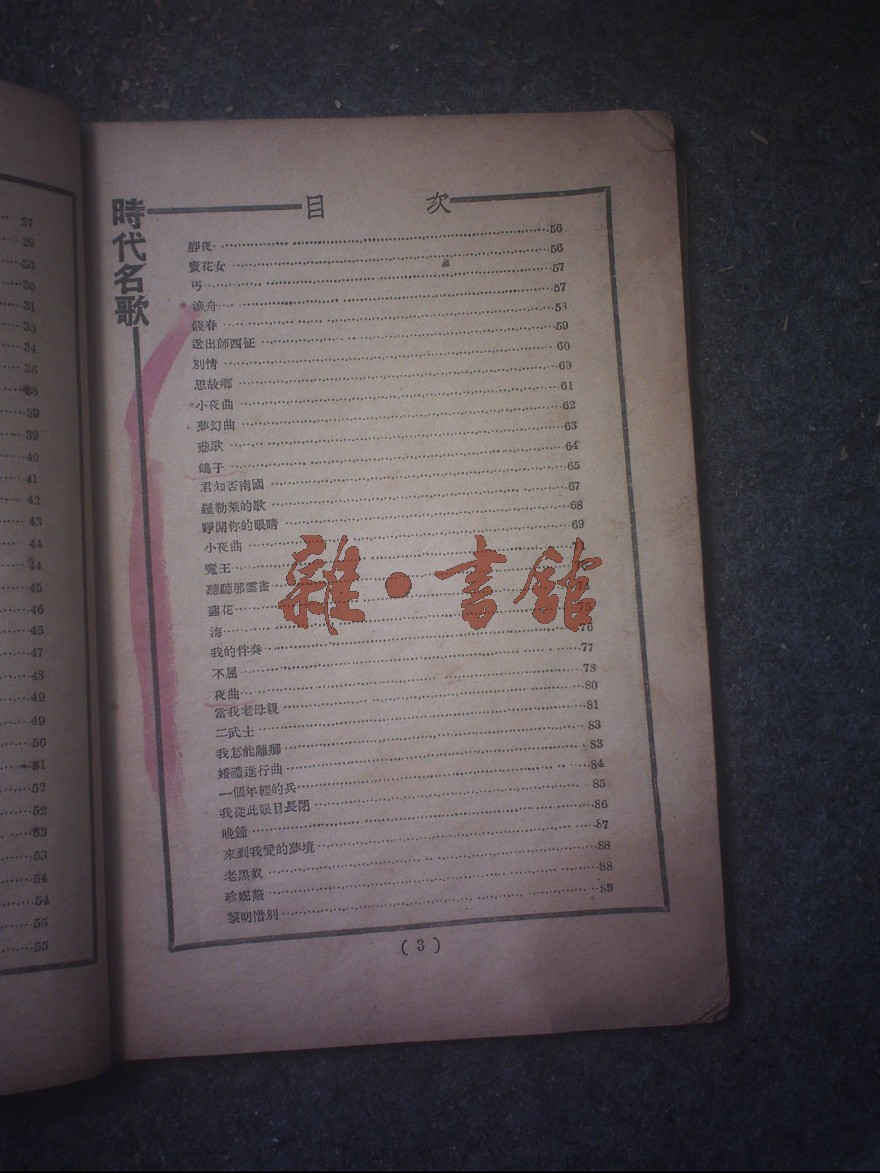 27
29
30
30
31
33
34
36
38
39
39
40
41
42
43
44
44
45
46
46
47
48
49
49
50
51
52
52
53
53
54
54
55
55
時代名歌
目 次
靜夜 56
賣花女 56
丐 57
漁舟 57
餞春 58
送出師西征 59
別情 60
思故鄉 60
小夜曲 61
夢幻曲 62
悲歌 63
鴿子 64
君知否南國 65
羅勒萊的歌 67
睜開你的眼睛 68
小夜曲 69
魔王
聽聽那雲雀 74
蓮花 75
海 76
我的伴奏 77
不屈 78
夜曲 80
當我老母親 81
二武士 83
我怎能離鄉 83
婚禮進行曲 84
一個年輕的兵 85
我從此眼目長閉 86
晚鐘 87
來到我愛的夢境 88
老黑奴 88
珍妮薇 89
黎明惜別
( 3 )
雜·書館